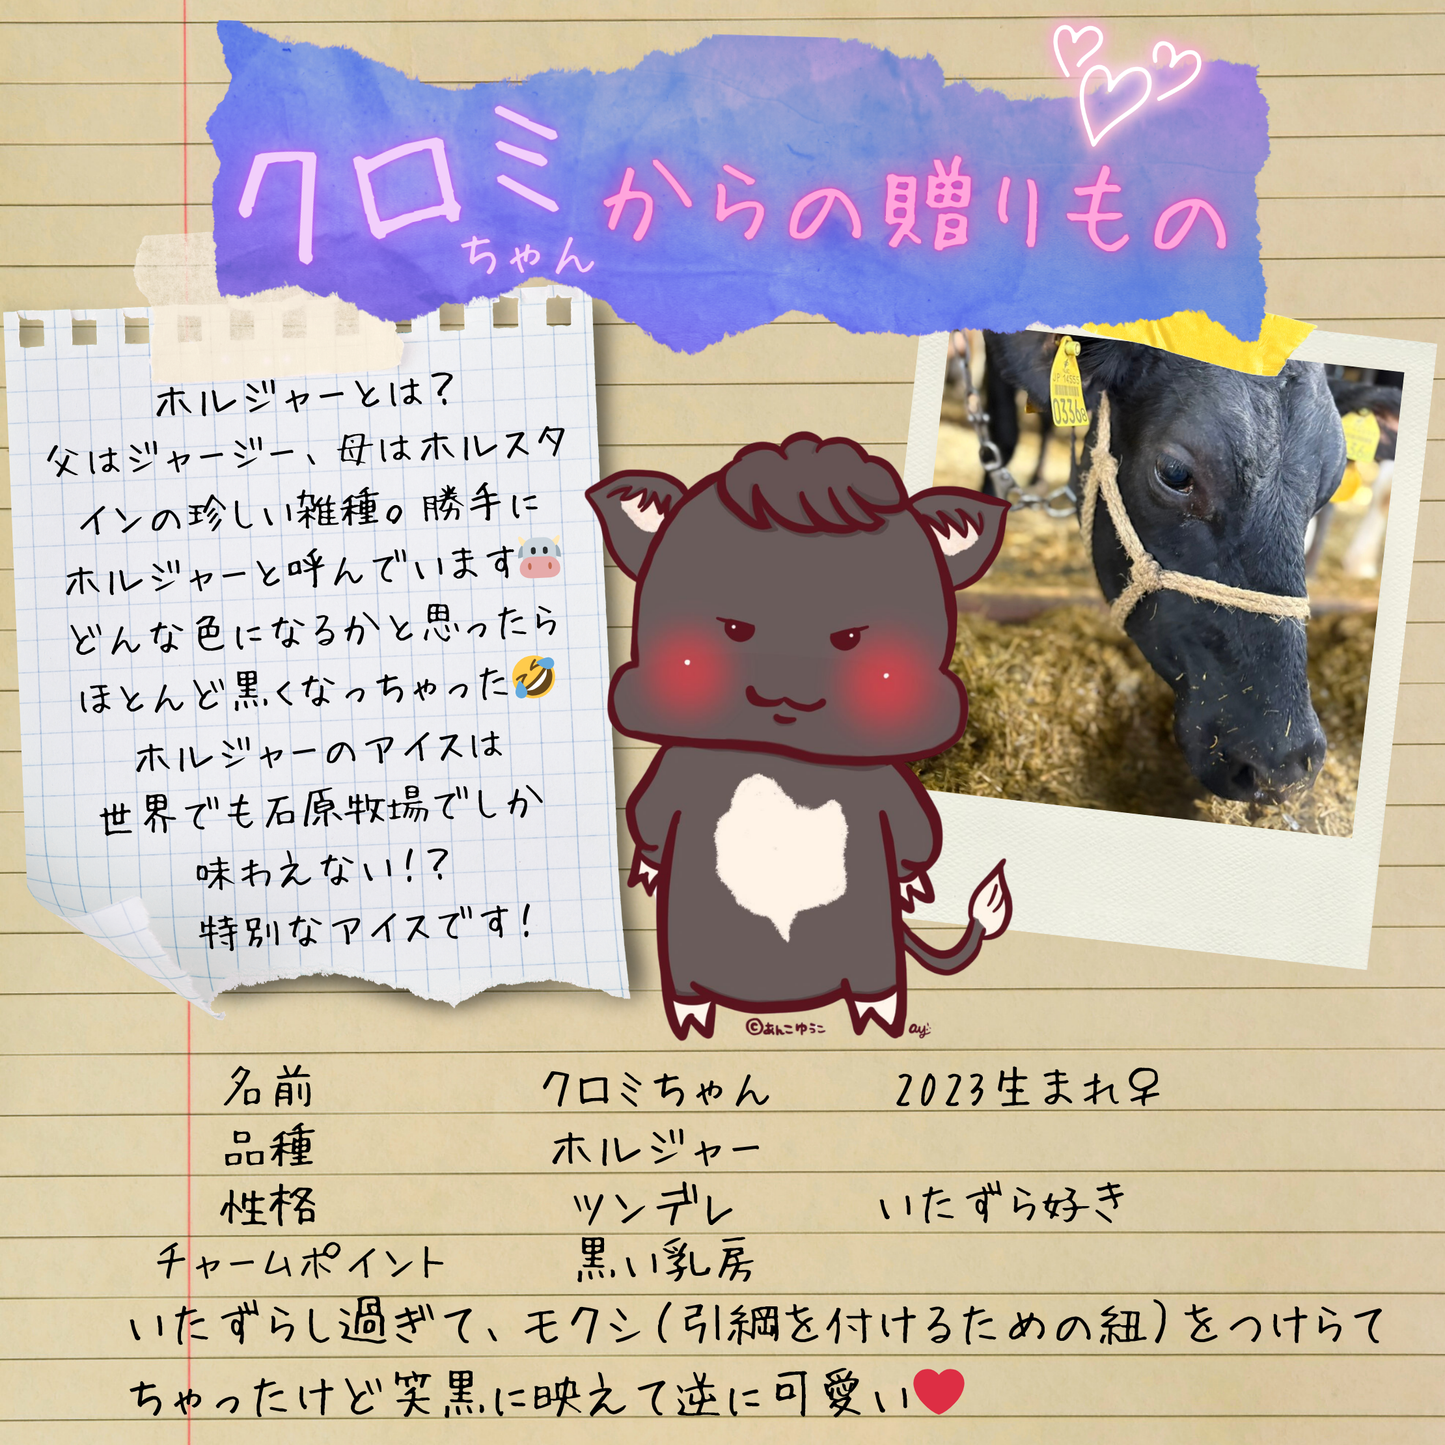 クロミちゃんからの贈りもの
ホルジャーとは？
父はジャージー、母はホルスタ
インの珍しい雑種。勝手に
ホルジャーと呼んでいます🐮
どんな色になるかと思ったら
ほとんど黒くなっちゃった🤣
ホルジャーのアイスは
世界でも石原牧場でしか
味わえない！？
特別なアイスです！
JP 14553
03368
©あんこゆうこ
ay
名前 クロミちゃん 2023生まれ♀
品種 ホルジャー
性格 ツンデレ いたずら好き
チャームポイント 黒い乳房
いたずらし過ぎて、モクシ(引綱を付けるための紐)をつけらて
ちゃったけど笑黒に映えて逆に可愛い❤